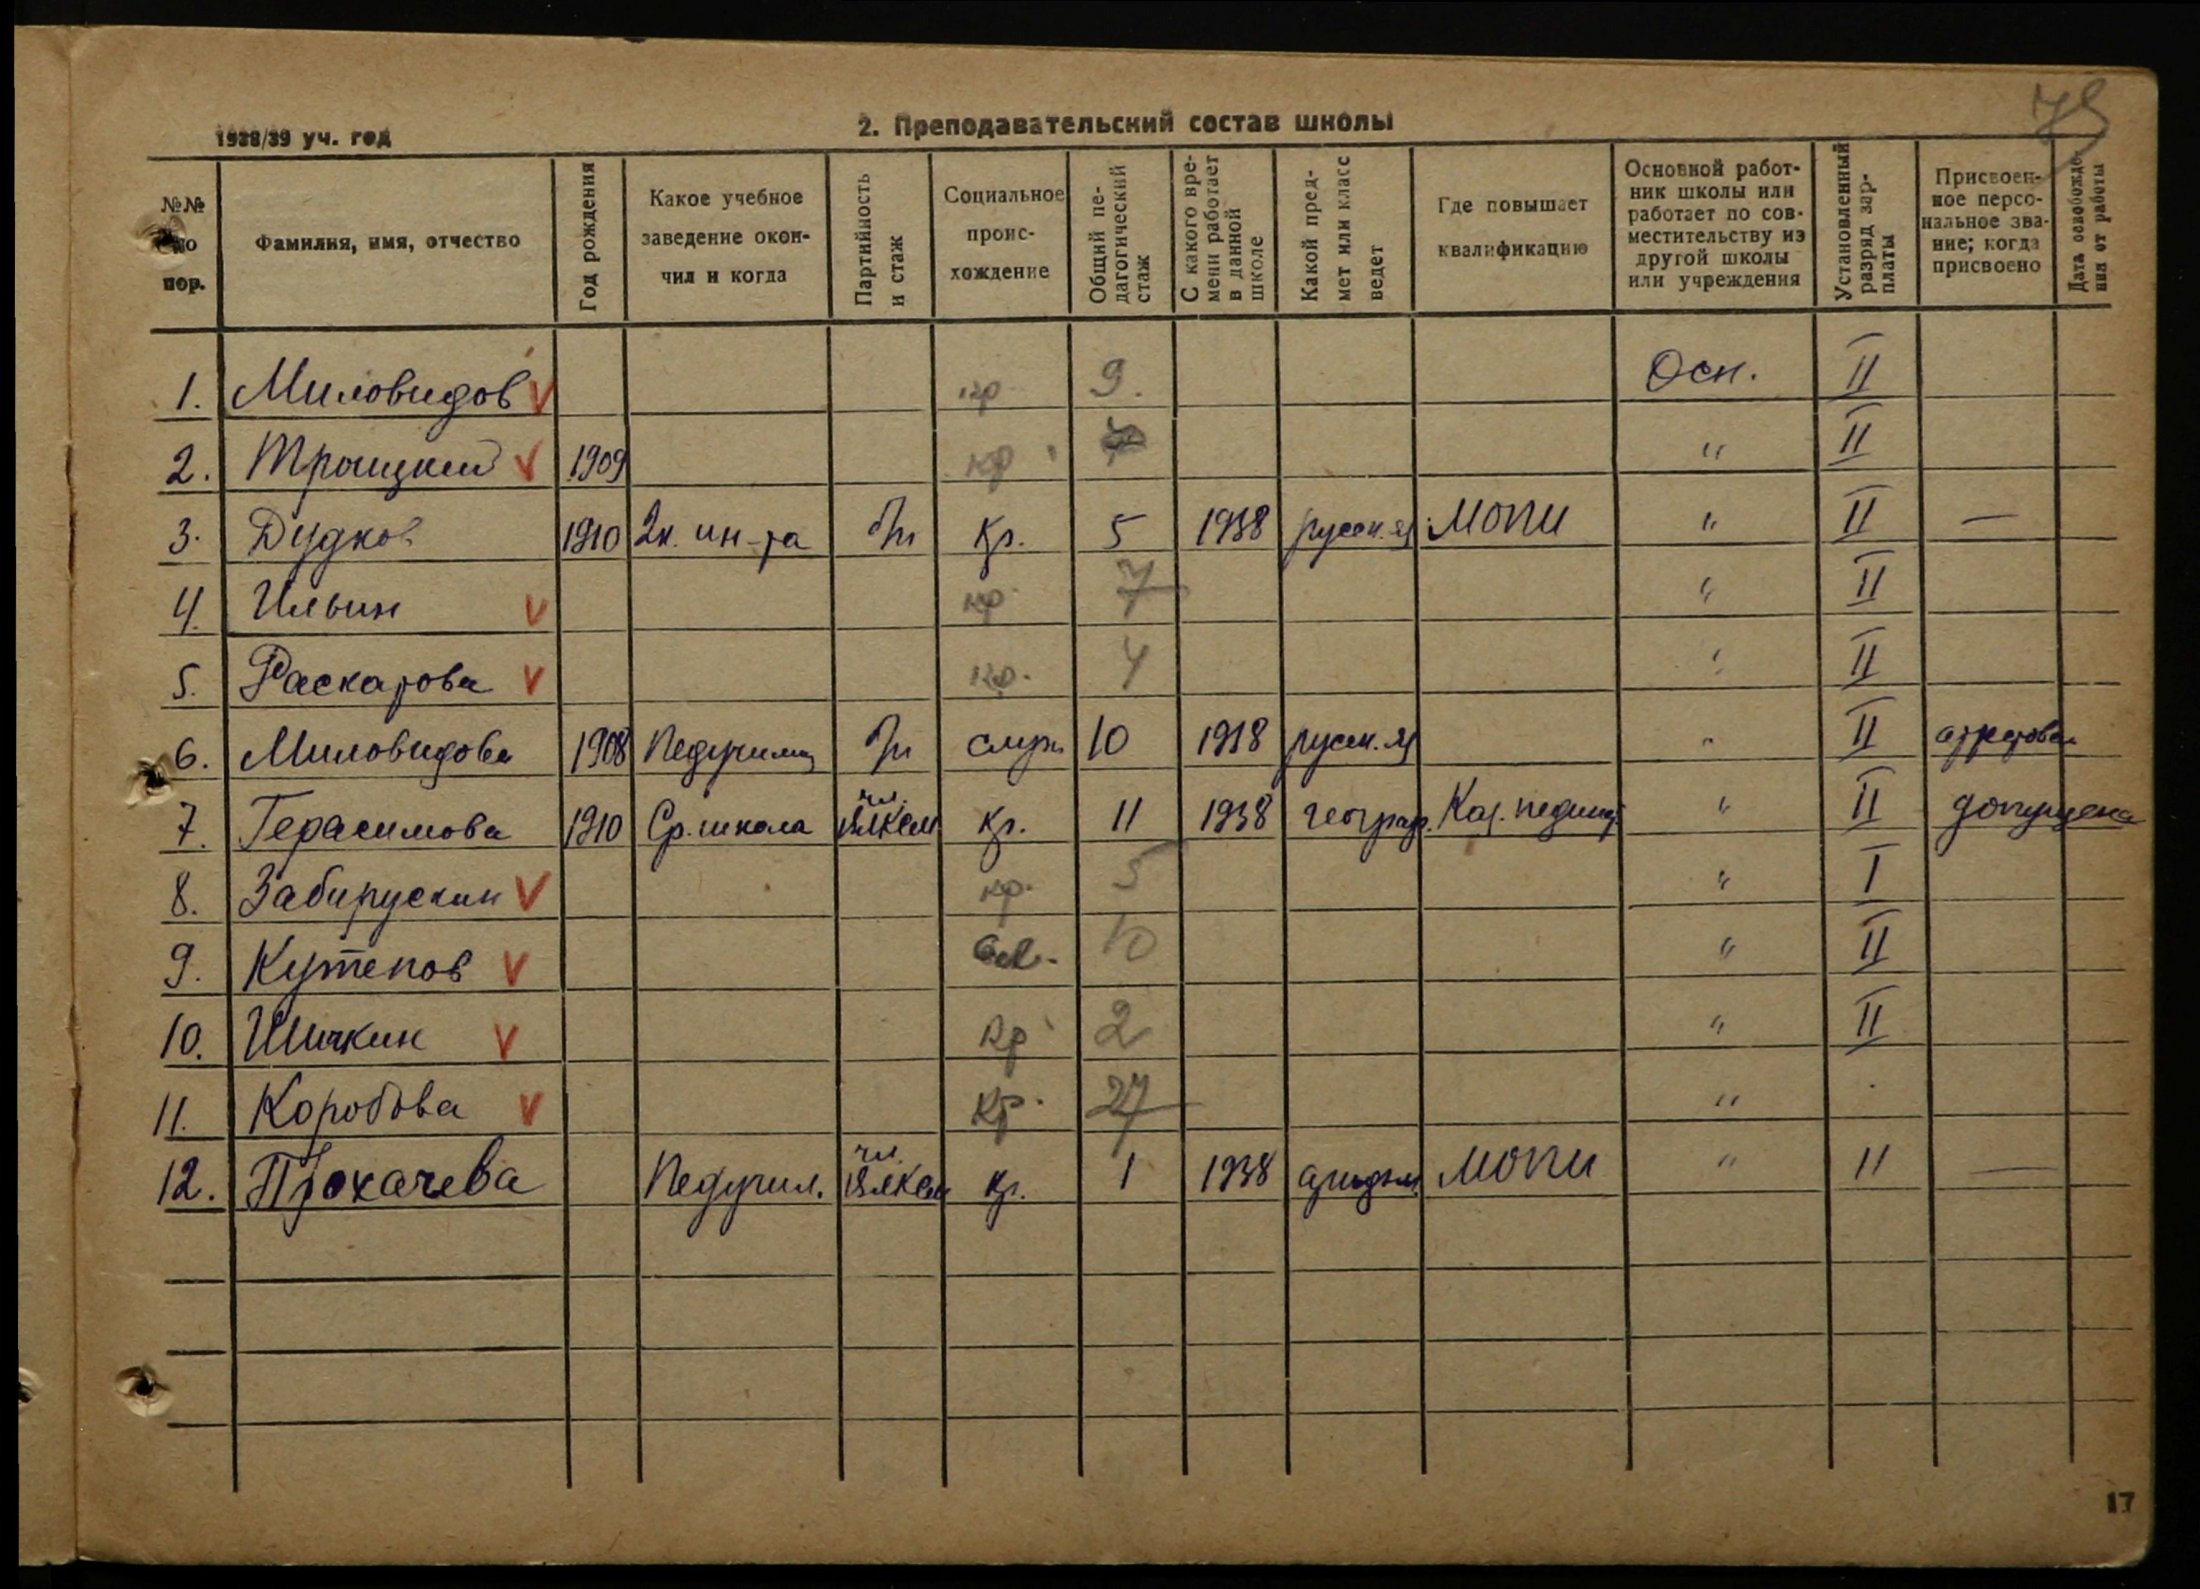 75
1938/39 уч. год
2. Преподавательский состав школы
№№ по пор.
Фамилия, имя, отчество
Год рождения
Какое учебное заведение окончил и когда
Партийность и стаж
Социальное происхождение
Общий педагогический стаж
С какого времени работает в данной школе
Какой предмет или класс ведет
Где повышает квалификацию
Основной работник школы или работает по совместительству из другой школы или учреждения
Установленный разряд зарплаты
Присвоенное персональное звание; когда присвоено
Дата освобождения от работы
1. Миловидов V кр 9. Осн. II
2. Троицкий V 1909 кр " II
3. Дудков 1910 2к. ин-та б/п Кр. 5 1938 русск. яз МОПИ " II —
4. Ильин V кр 7 " II
5. Раскатова V кр. 4 " II
6. Миловидова 1908 Педучилищ б/п служ 10 1938 русск. яз " II аттестован
7. Герасимова 1910 Ср. школа чл. ВЛКСМ Кр. 11 1938 географ. " II допущена
8. V кр. 5 " I
9. Кутепов V 10 " II
10. Шичкин V Кр 2 " II
11. Коробова V Кр. 27 "
12. Педучил. чл. ВЛКСМ Кр. 1 1938 МОПИ " II —
17